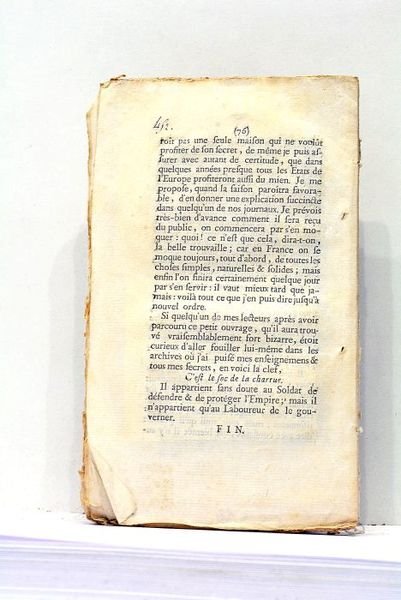 452.
(76)
roit pas une seule maison qui ne voulût
profiter de son secret, de même je puis as-
surer avec autant de certitude, que dans
quelques années presque tous les Etats de
l'Europe profiteront aussi du mien. Je me
propose, quand la saison paroîtra favora-
ble, d'en donner une explication succincte
dans quelqu'un de nos journaux. Je prévois
très-bien d'avance comment il sera reçu
du public, on commencera par s'en mo-
quer: quoi! ce n'est que cela, dira-t-on,
la belle trouvaille; car en France on se
moque toujours, tout d'abord, de toutes les
choses simples, naturelles & solides; mais
enfin l'on finira certainement quelque jour
par s'en servir: il vaut mieux tard que ja-
mais: voilà tout ce que j'en puis dire jusqu'à
nouvel ordre.
Si quelqu'un de mes lecteurs après avoir
parcouru ce petit ouvrage, qu'il aura trou-
vé vraisemblablement fort bizarre, étoit
curieux d'aller fouiller lui-même dans les
archives où j'ai puisé mes enseignemens &
tous mes secrets, en voici la clef,
C'est le soc de la charrue.
Il appartient sans doute au Soldat de
défendre & de protéger l'Empire; mais il
n'appartient qu'au Laboureur de le gou-
verner.
FIN.